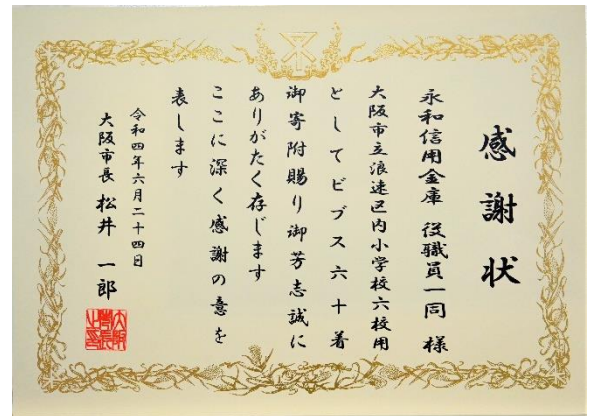 感謝状
永和信用金庫 役職員一同 様
大阪市立浪速区内小学校六校用
としてビブス六十着
御寄附賜り御芳志誠に
ありがたく存じます
ここに深く感謝の意を
表します
令和四年六月二十四日
大阪市長 松井 一郎
大阪市長之印